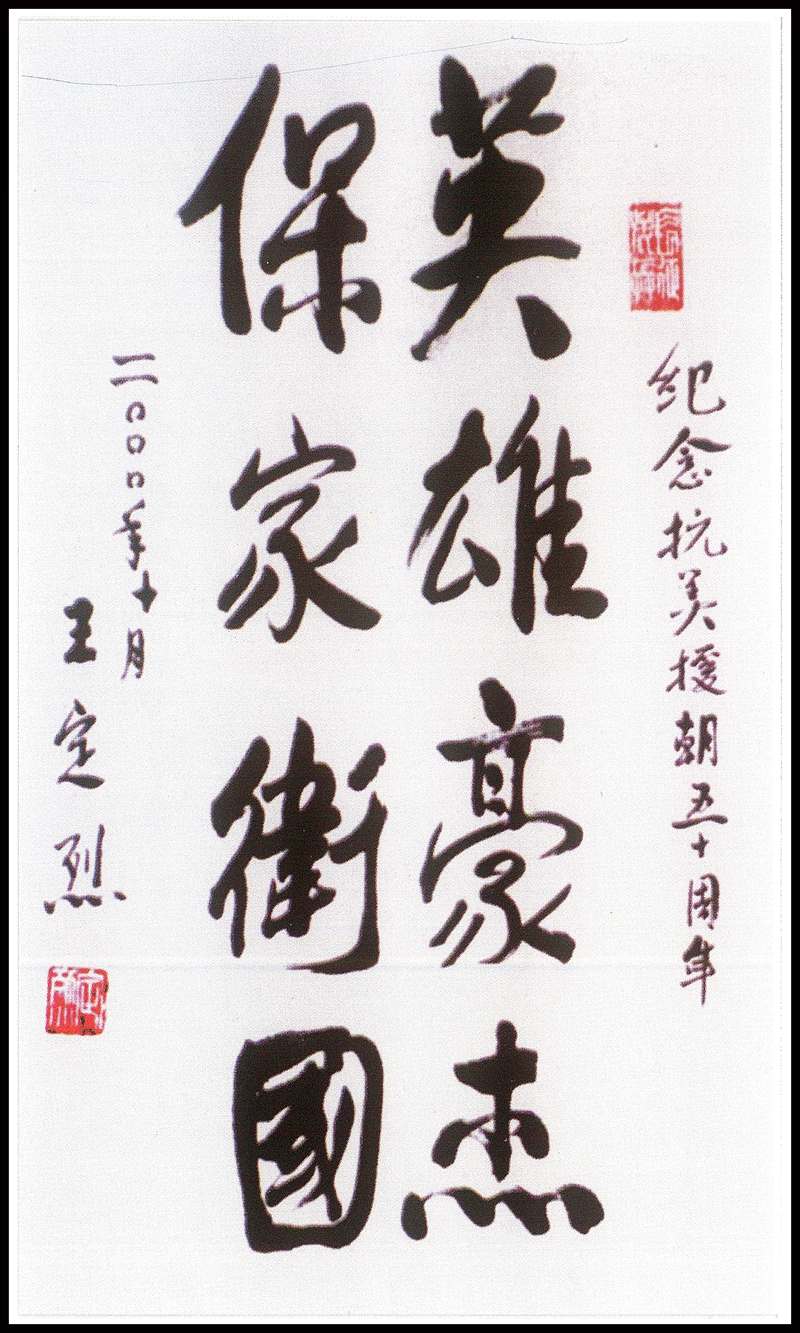 纪念抗美援朝五十周年
英雄豪杰
保家衛國
二〇〇〇年十月
王定烈